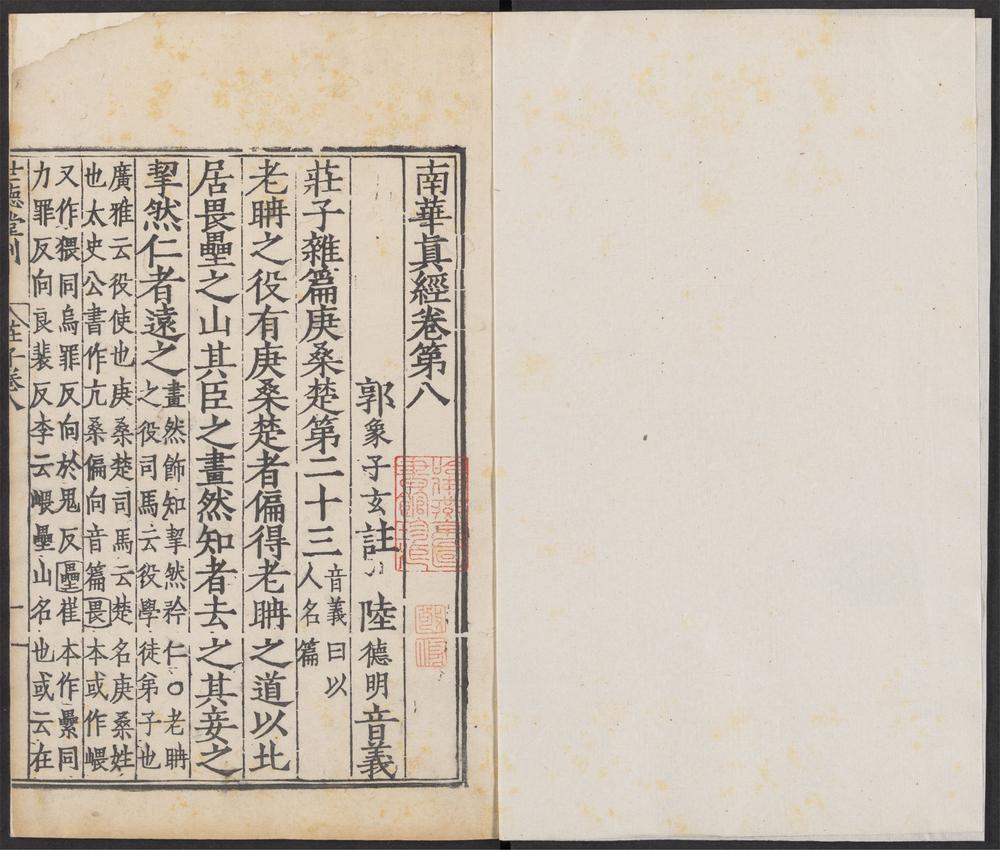 南華眞經卷第八
郭象子玄註 陸德明音義
莊子雜篇庚桑楚第二十三
音義曰以
人名篇
老聃之役有庚桑楚者偏得老聃之道以北
居畏壘之山其臣之畫然知者去之其妾之
挈然仁者遠之
畫然飾知挈然矜仁○老聃
之役司馬云役學徒弟子也
廣雅云役使也庚桑楚司馬云楚名庚桑姓
也太史公書作亢桑偏向音篇畏本或作嵔
又作猥同烏罪反向於鬼反壘崔本作纍同
力罪反向良裴反李云嵔壘山名也或云在
世德堂刊
莊子卷八
一